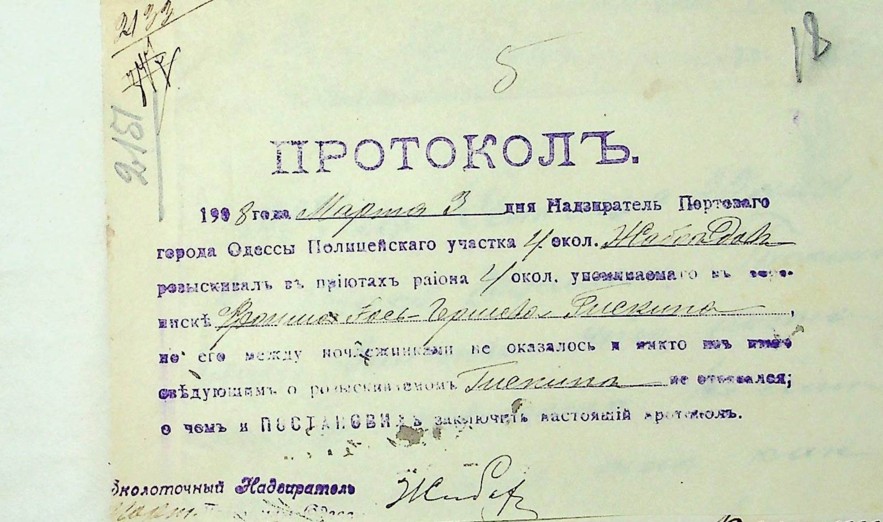 2133
18
5
2151
ПРОТОКОЛЪ.
1908 года Марта 3 дня Надзиратель Портоваго
города Одессы Полицейскаго участка 4 окол.
розыскивалъ въ пріютахъ раіона 4 окол. упоминаемаго въ пере-
пискѣ Гискина,
но его между ночлежниками не оказалось и никто изъ нихъ
свѣдующимъ о розыскиваемомъ Гискина не отозвался;
о чемъ и ПОСТАНОВИЛЪ заключить настоящій протоколъ.
Околоточный Надзиратель